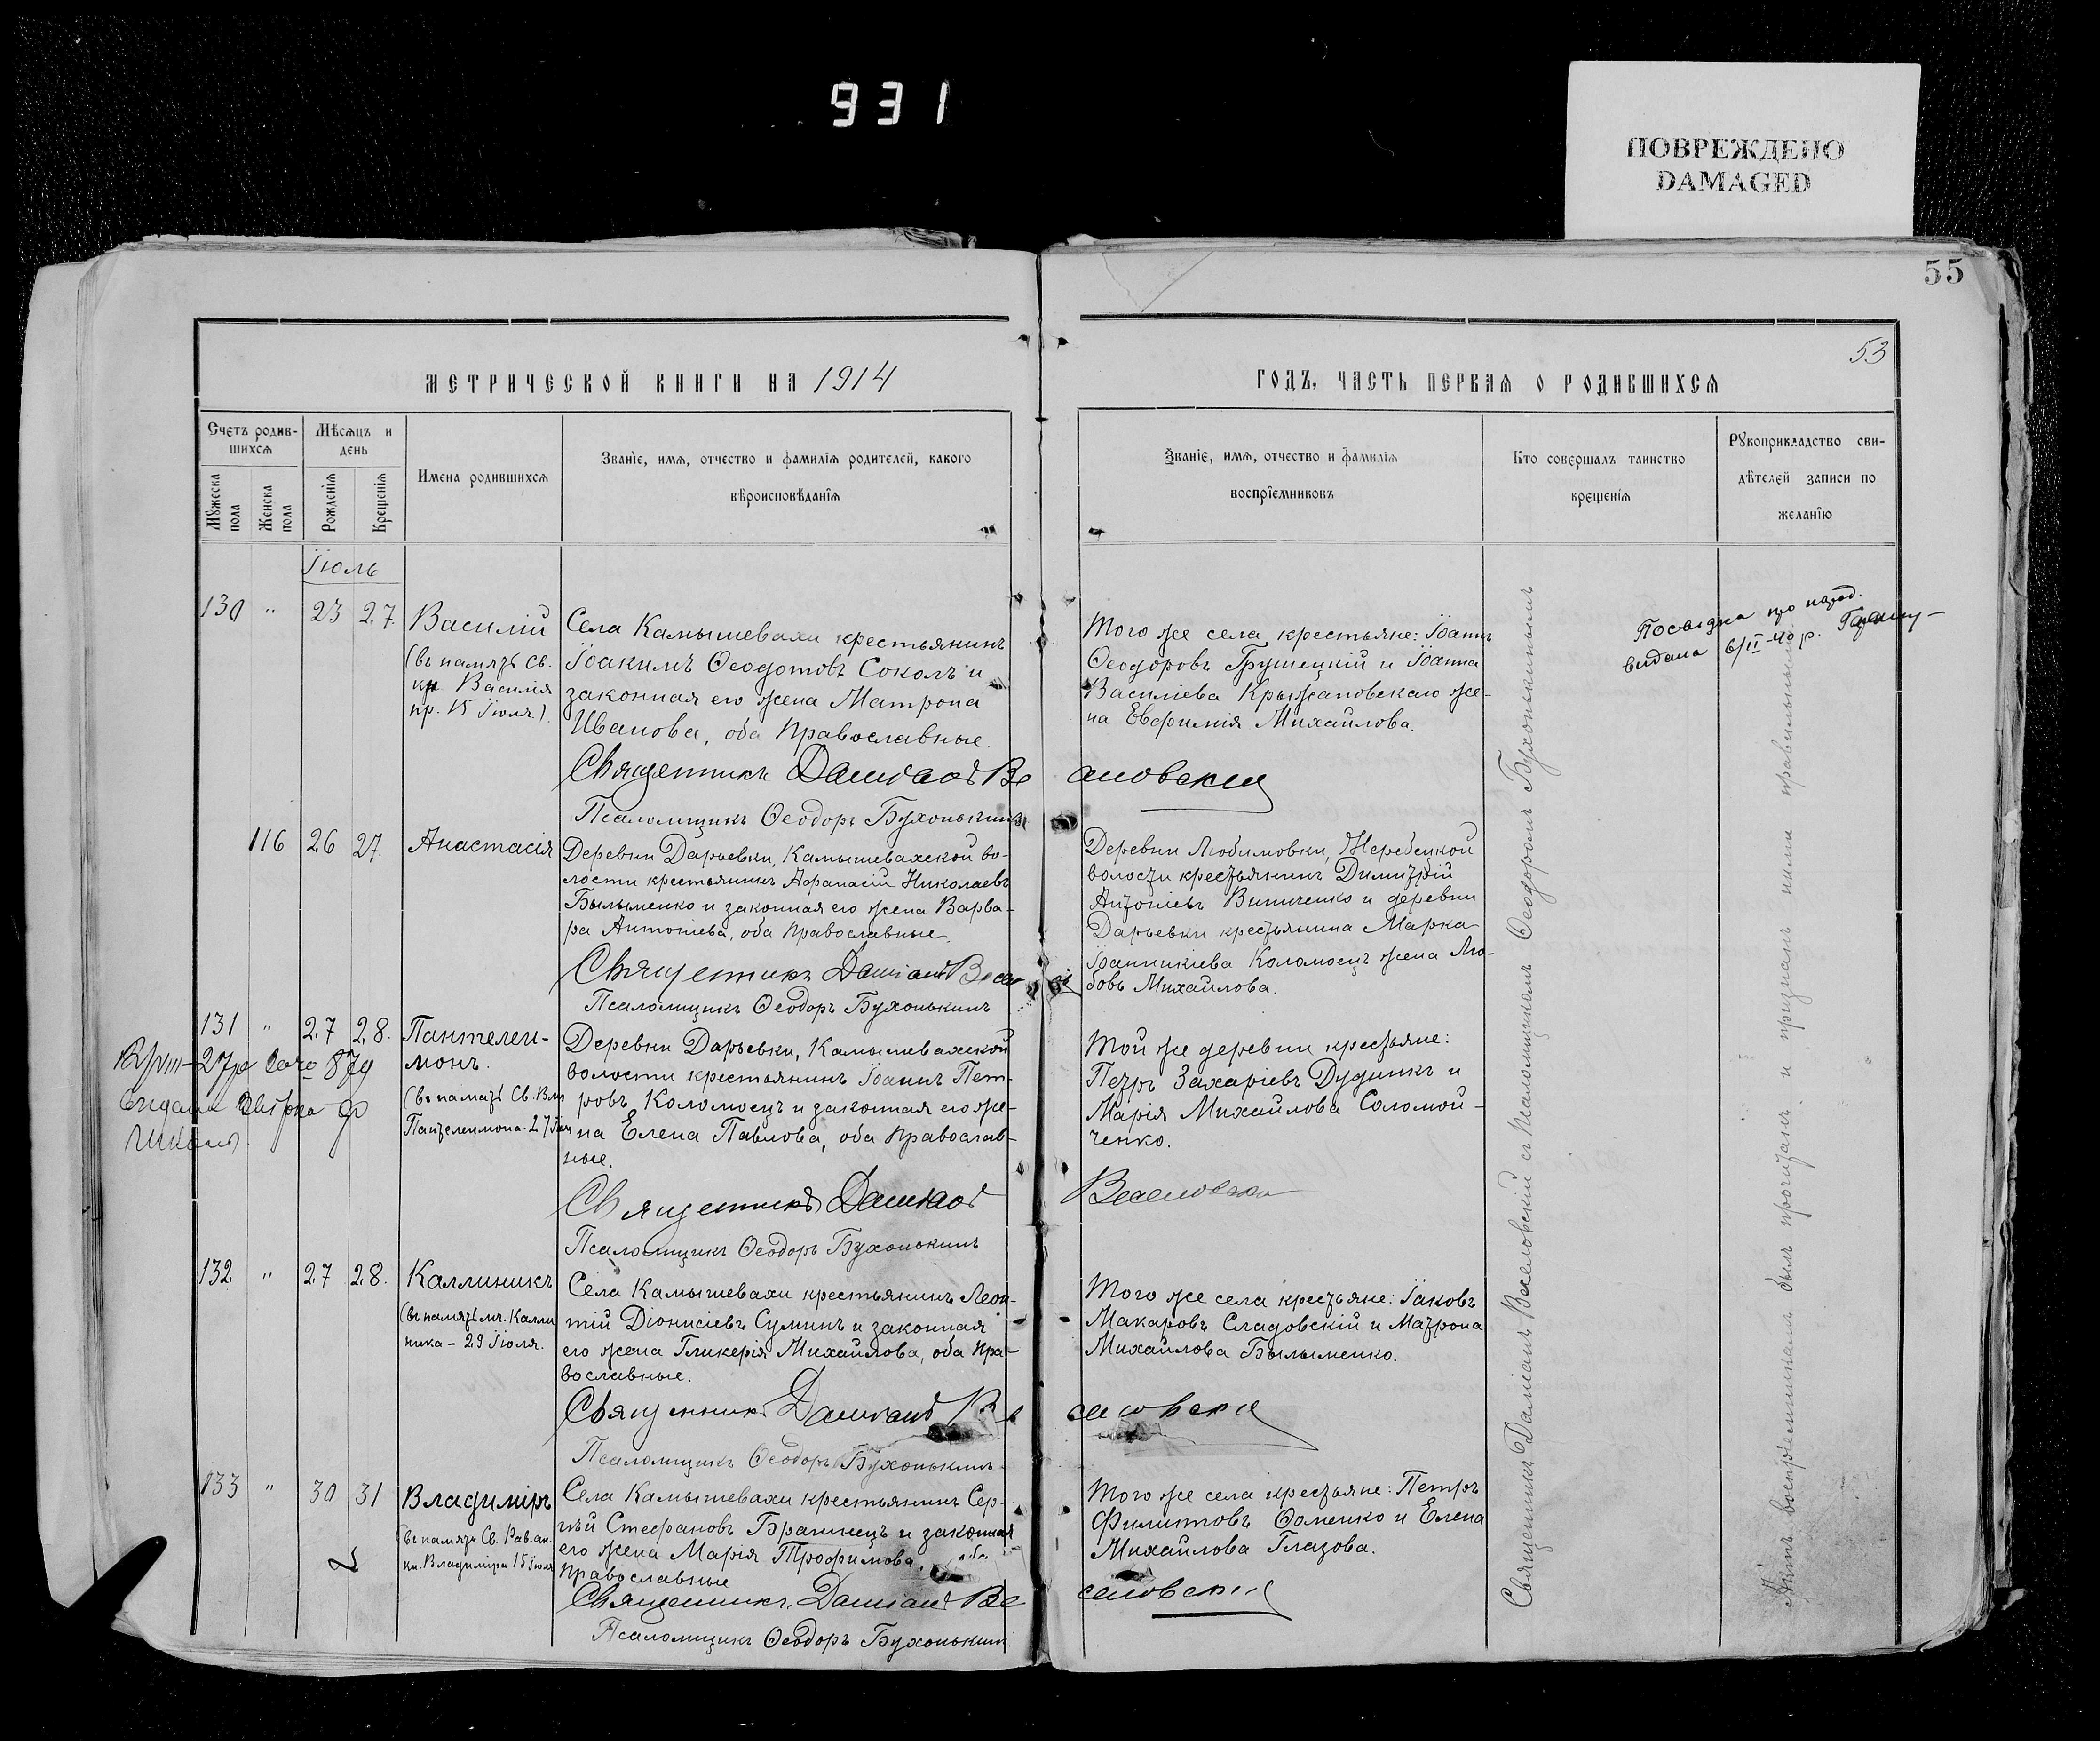 931
ПОВРЕЖДЕНО
DAMAGED
55
53
МЕТРИЧЕСКОЙ КНИГИ НА 1914
ГОДЪ, ЧАСТЬ ПЕРВАЯ О РОДИВШИХСЯ
Счетъ родив-
шихся
Мужеска пола
Женска пола
Мѣсяцъ и
день
Рожденія
Крещенія
Имена родившихся
Званіе, имя, отчество и фамилія родителей, какого
вѣроисповѣданія
Званіе, имя, отчество и фамилія
воспріемниковъ
Кто совершалъ таинство
крещенія
Рукоприкладство сви-
дѣтелей записи по
желанію
Іюль
130 " 23 27.
Василій
(въ память св.
кн Василія
пр. 15 Іюля).
Села Камышевахи крестьянинъ
Іоакимъ Ѳеодотовъ Соколъ и
законная его жена Матрона
Иванова, оба православные.
Священникъ Даміанъ Ве
Псаломщикъ Ѳеодоръ Бухонькинъ
Того же села крестьяне: Іоаннъ
Ѳеодоровъ Грушецкій и Іоанна
Василіева Крыжановскаго же-
на Евфимія Михайлова.
еловскій
про народ.
видана 6/II-40 р.
116 26 27.
Анастасія
Деревни Дарьевки, Камышевахской во-
лости крестьянинъ Афанасій Николаевъ
Былыменко и законная его жена Варва-
ра Антоніева, оба православные.
Священникъ Даміанъ Весел
Псаломщикъ Ѳеодоръ Бухонькинъ
Деревни Любимовки, Жеребецкой
волости крестьянинъ Димитрій
Антоніевъ Винниченко и деревни
Дарьевки крестьянина Марка
Іоанникіева Коломоецъ жена Лю-
бовь Михайлова.
131 " 27 28.
Пантелеи-
монъ.
(въ память Св. Влм
Пантелеимона. 27 Іюл
видана
Деревни Дарьевки, Камышевахской
волости крестьянинъ Іоаннъ Пет-
ровъ Коломоецъ и законная его же-
на Елена Павлова, оба православ-
ные.
Священникъ Даміанъ
Псаломщикъ Ѳеодоръ Бухонькинъ
Той же деревни крестьяне:
Петръ Захаріевъ Дудникъ и
Марія Михайлова Соломой-
ченко.
Веселовскі
132 " 27 28.
Каллиникъ
(въ память мч. Калли
ника - 29 Іюля.
Села Камышевахи крестьянинъ Леон-
тій Діонисіевъ Суминъ и законная
его жена Гликерія Михайлова, оба пра-
вославные.
Священникъ Даміанъ Ве
Псаломщикъ Ѳеодоръ Бухонькинъ
Того же села крестьяне: Іаковъ
Макаровъ Сладовскій и Матрона
Михайлова Былыменко.
селовскій
133 " 30 31
Владиміръ
(въ память Св. Рав. ап.
кн. Владиміра 15 Іюля
Села Камышевахи крестьянинъ Сер-
гѣй Стефановъ Бранинецъ и законная
его жена Марія Трофимова, оба
православные
Священникъ Даміанъ Ве
Псаломщикъ Ѳеодоръ Бухонькинъ
Того же села крестьяне: Петръ
Филиповъ Ѳоменко и Елена
Михайлова Глазова.
селовскій
Священникъ Даміанъ Веселовскій съ псаломщикомъ Ѳеодоромъ Бухонькинымъ
воспріемниками былъ прочитанъ и признанъ ними правильнымъ